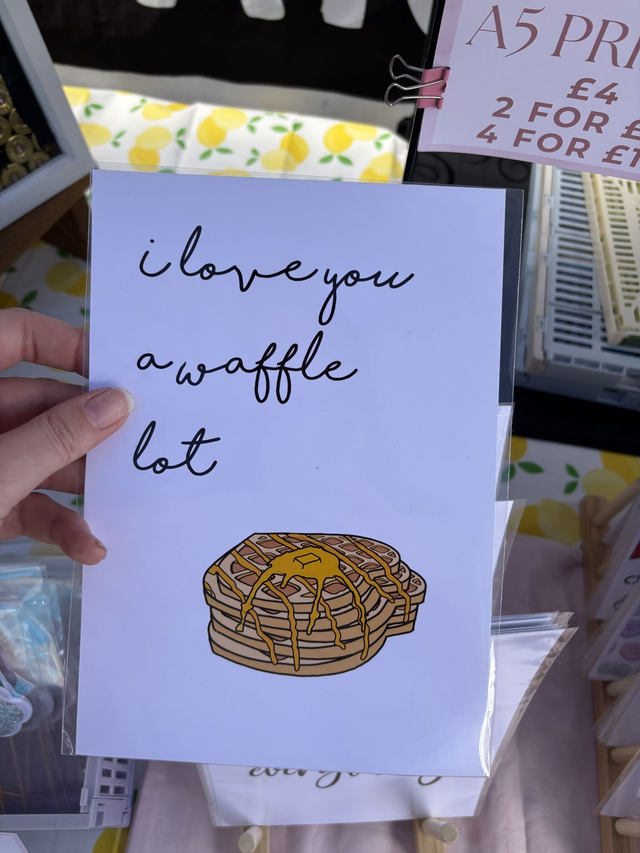 A5
£4
2 FOR
4 FOR
i love you
a waffle
lot